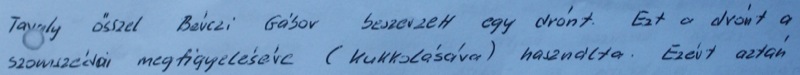 Tavaly ősszel Bévczi Gábor beszerzett egy drónt. Ezt a drónt a
szomszédai megfigyelésére (kukkolására) használta. Ezért aztán